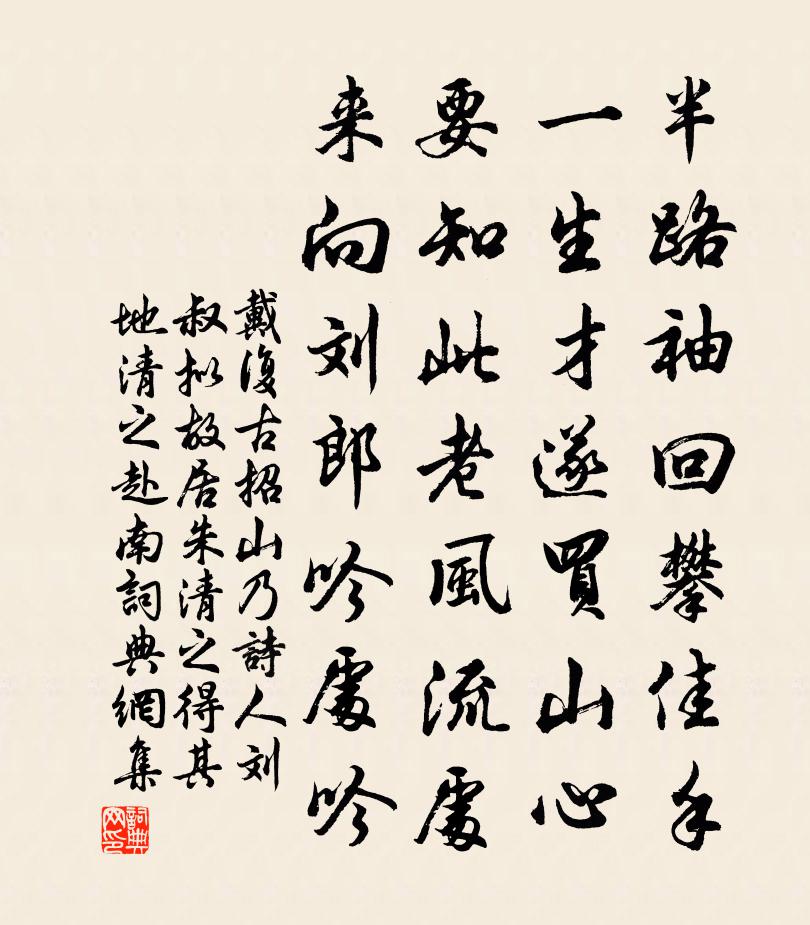 半路袖回攀佳手
一生才遂買山心
要知此老風流處
来向刘郎吟處吟
戴復古招山乃詩人刘
叔拟故居朱清之得其
地清之赴南詞典網集
詞典网印